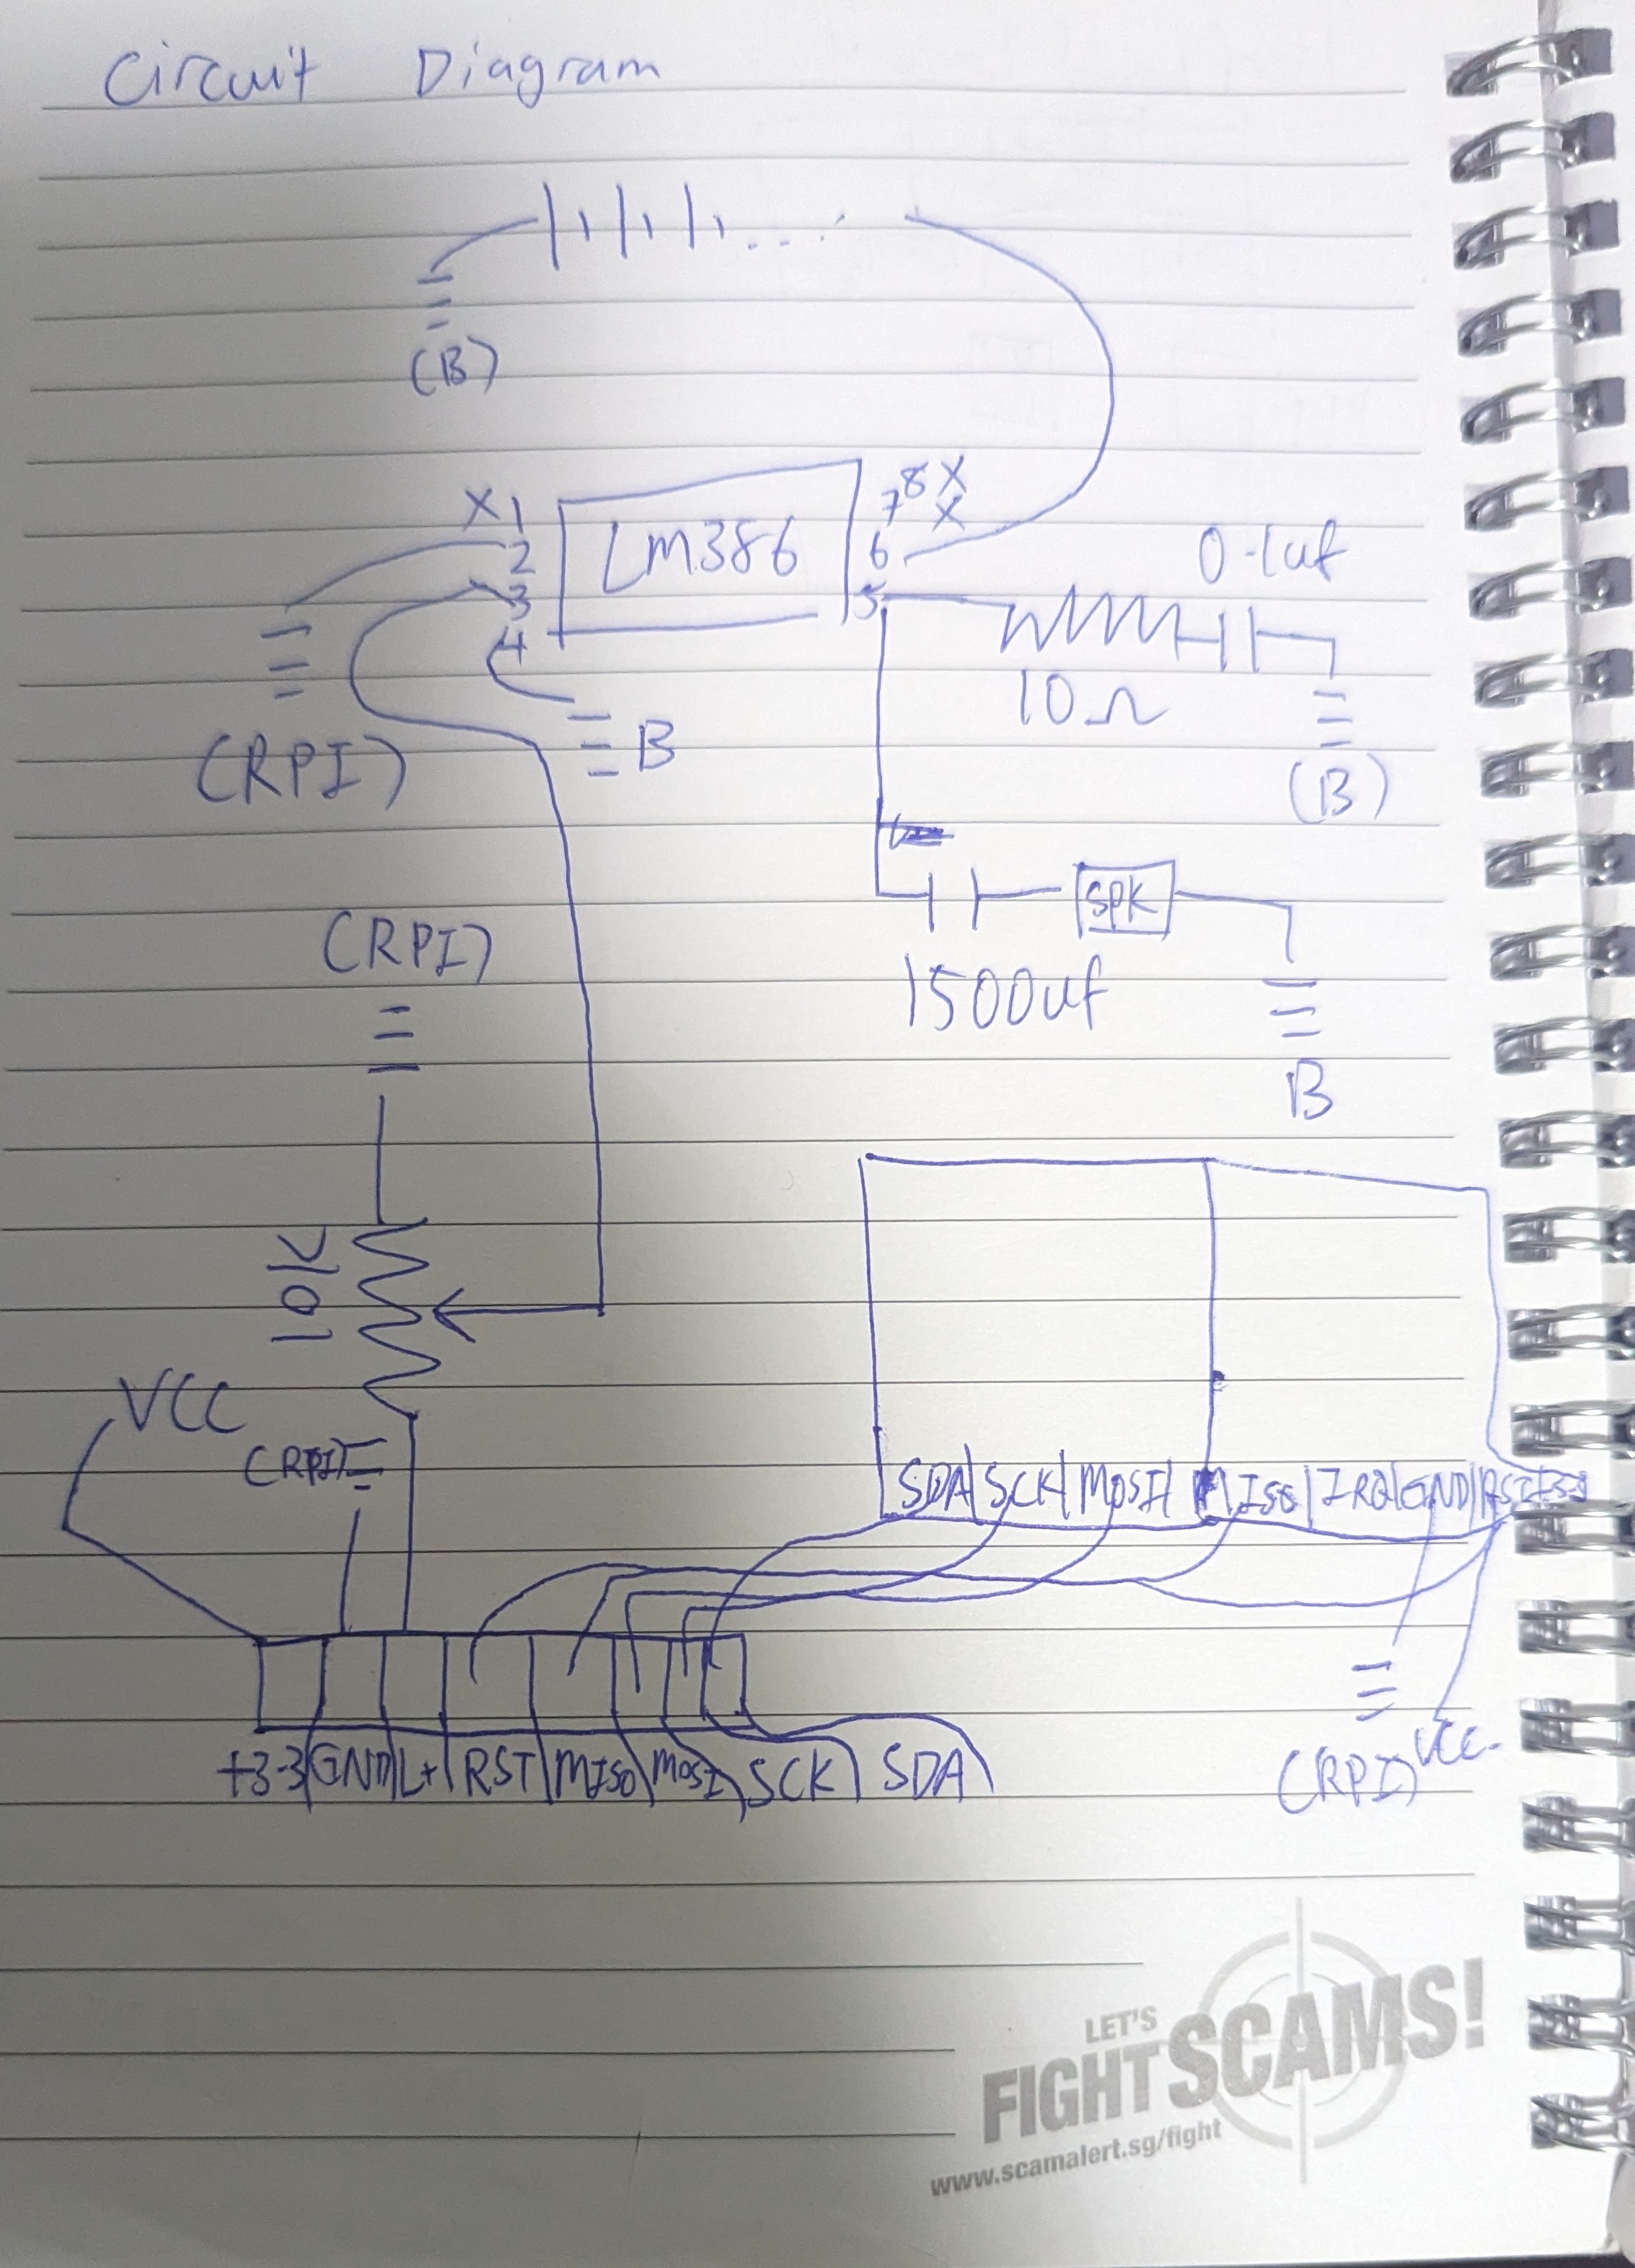 Circuit Diagram
(B)
X 1
2
3
4
LM386
8 X
7 X
6
5
0.1uf
10Ω
(RPI)
B
(B)
SPK
(RPI)
1500uf
B
10K
VCC
(RPI)
SDA|SCK|MOSI|MISO|IRQ|GND|
+3.3|GND|L+|RST|MISO|MOSI|SCK|SDA
(RPI)
VCC
LET'S
FIGHT SCAMS!
www.scamalert.sg/fight